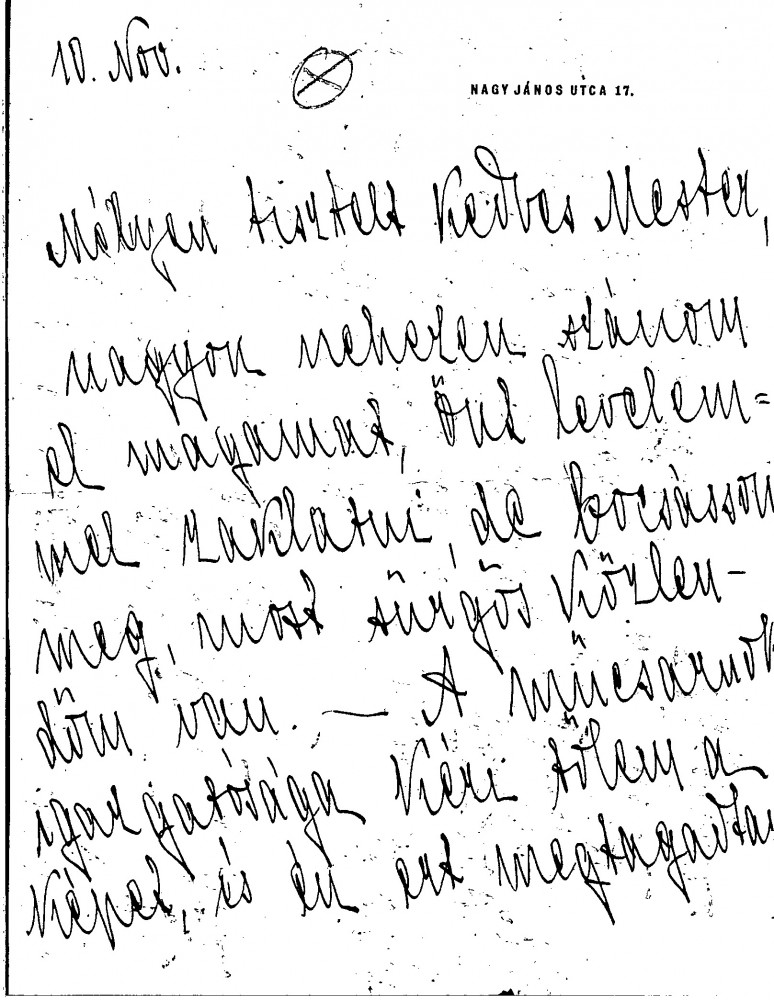 10. Nov.
NAGY JÁNOS UTCA 17.
Mélyen tisztelt kedves Mester,
nagyon nehezen szánom
el magamat, Önt levelem=
mel zaklatni, de bocsásson
meg, most sürgős közlen-
dőm van. — A műcsarnok
igazgatósága kéri tőlem a
képet, és én ezt megtagadtam